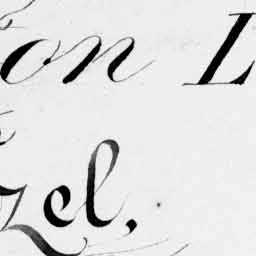 on L
zel,